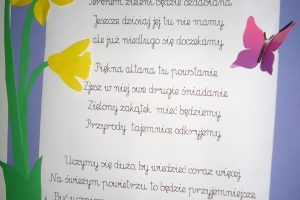 Terenem zieleni będzie ozdabiana
Jeszcze dzisiaj jej tu nie mamy
ale już niedługo się doczekamy.
Piękna altana tu powstanie
Zjesz w niej swe drugie śniadanie
Zielony zakątek mieć będziemy
Przyrody tajemnice odkryjemy.
Uczymy się dużo, by wiedzieć coraz więcej
Na świeżym powietrzu to będzie przyjemniejsze
Być